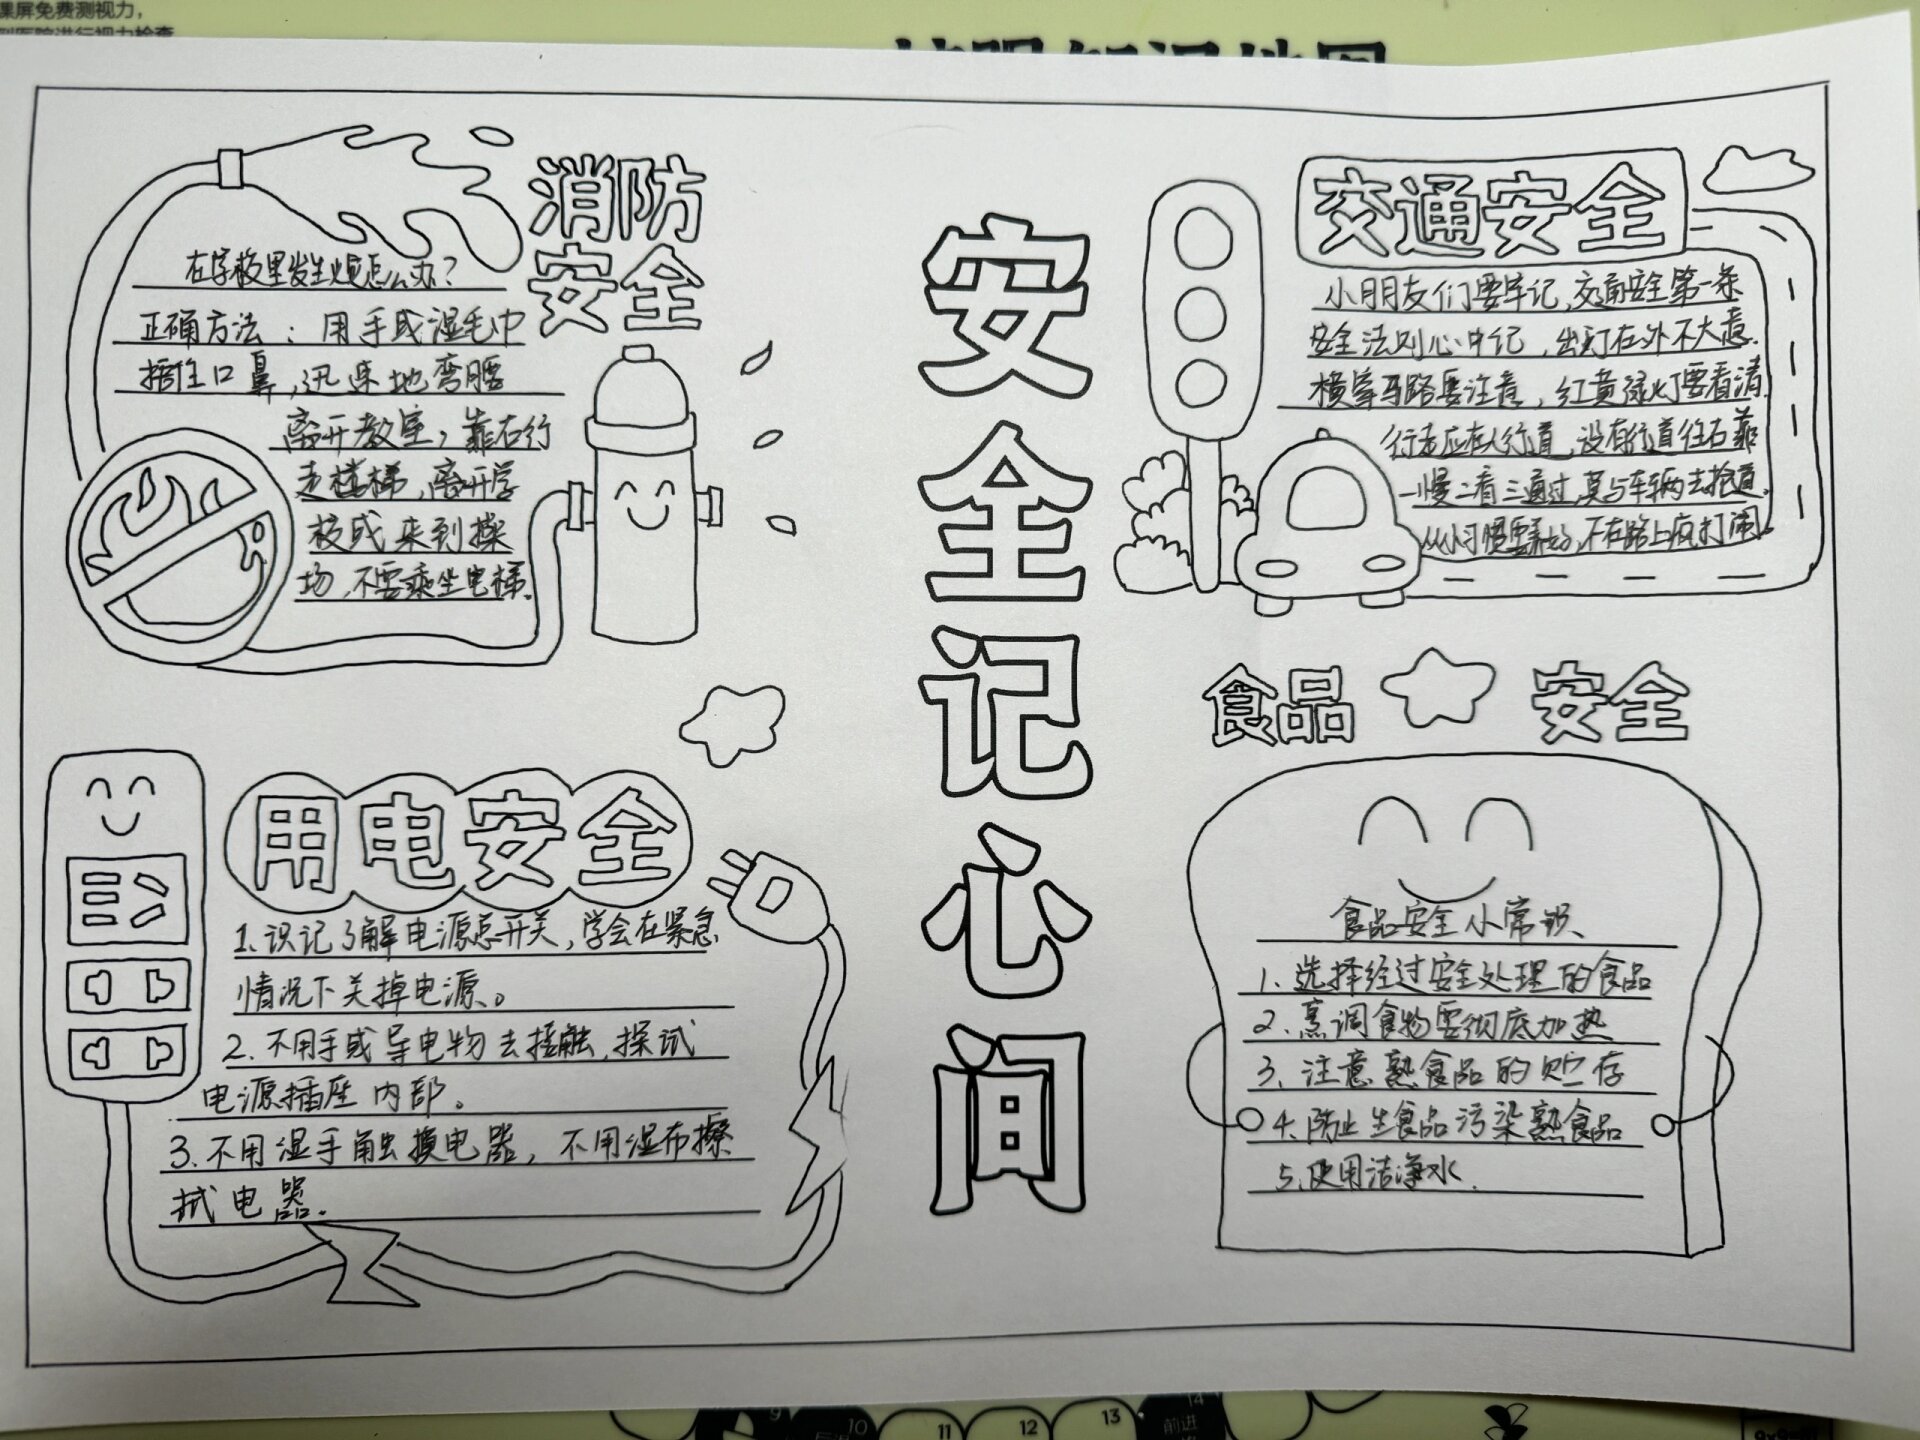 课屏免费测视力，
消防
安全
在学校里发生火灾怎么办？
正确方法：用手或湿毛巾
捂住口鼻，迅速地弯腰
离开教室，靠右行
走楼梯，离开学
校或来到操
场，不要乘坐电梯。
安全记心间
交通安全
小朋友们要牢记，交通安全第一条
安全法则心中记，出行在外不大意．
横穿马路要注意，红黄绿灯要看清．
行走应在人行道，没有行道往右靠
一慢二看三通过，莫与车辆去抢道．
从小习惯要养好，不在路上疯打闹。
用电安全
1、识记了解电源总开关，学会在紧急
情况下关掉电源。
2．不用手或导电物去接触，探试
电源插座内部。
3．不用湿手触摸电器，不用湿布擦
拭电器．
食品 安全
食品安全小常识、
1、选择经过安全处理的食品
2、烹调食物要彻底加热
3、注意熟食品的贮存
4、防止生食品污染熟食品
5、使用洁净水．
9
10
11
12
13
14
前进